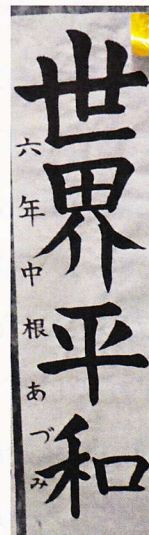 世界平和
六年中根あづみ